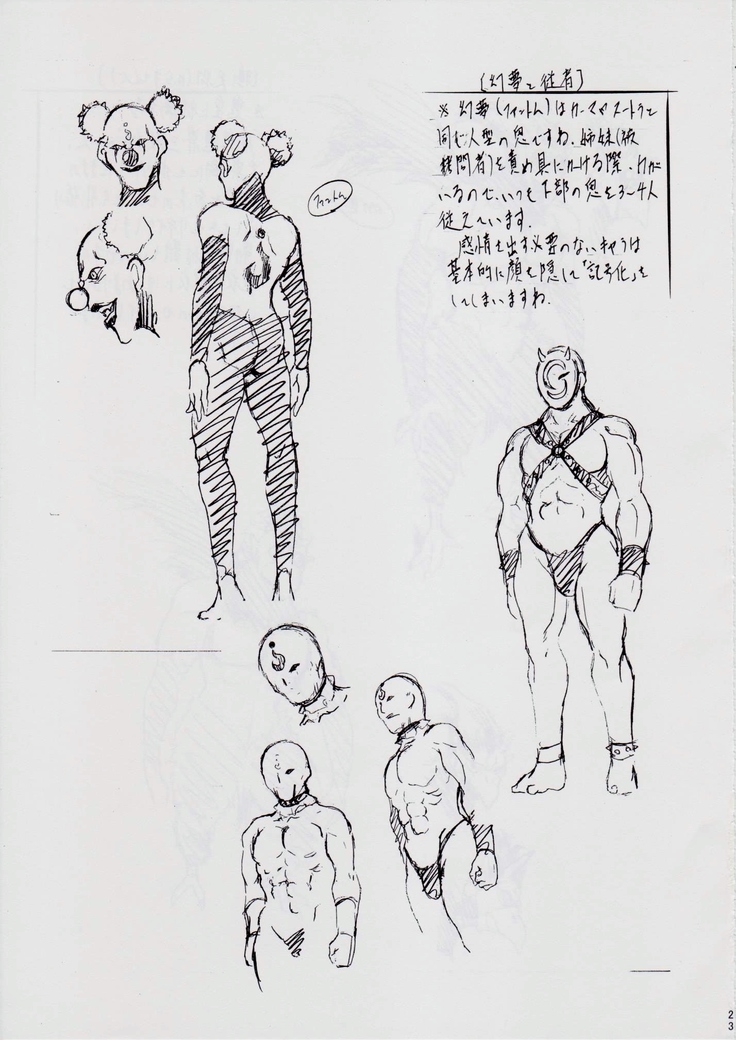 〔幻夢と従者〕
※ 幻夢(フィットム)はカーマやスートラと
同じ人型の鬼ですね。姉妹(被
拷問者)を責め具にかける際、力が
いるので、いつも下部の鬼を3〜4人
従えています。
感情を出す必要のないキャラは
基本的に顔を隠して「記号化」を
してしまいますね。
フィットム
23